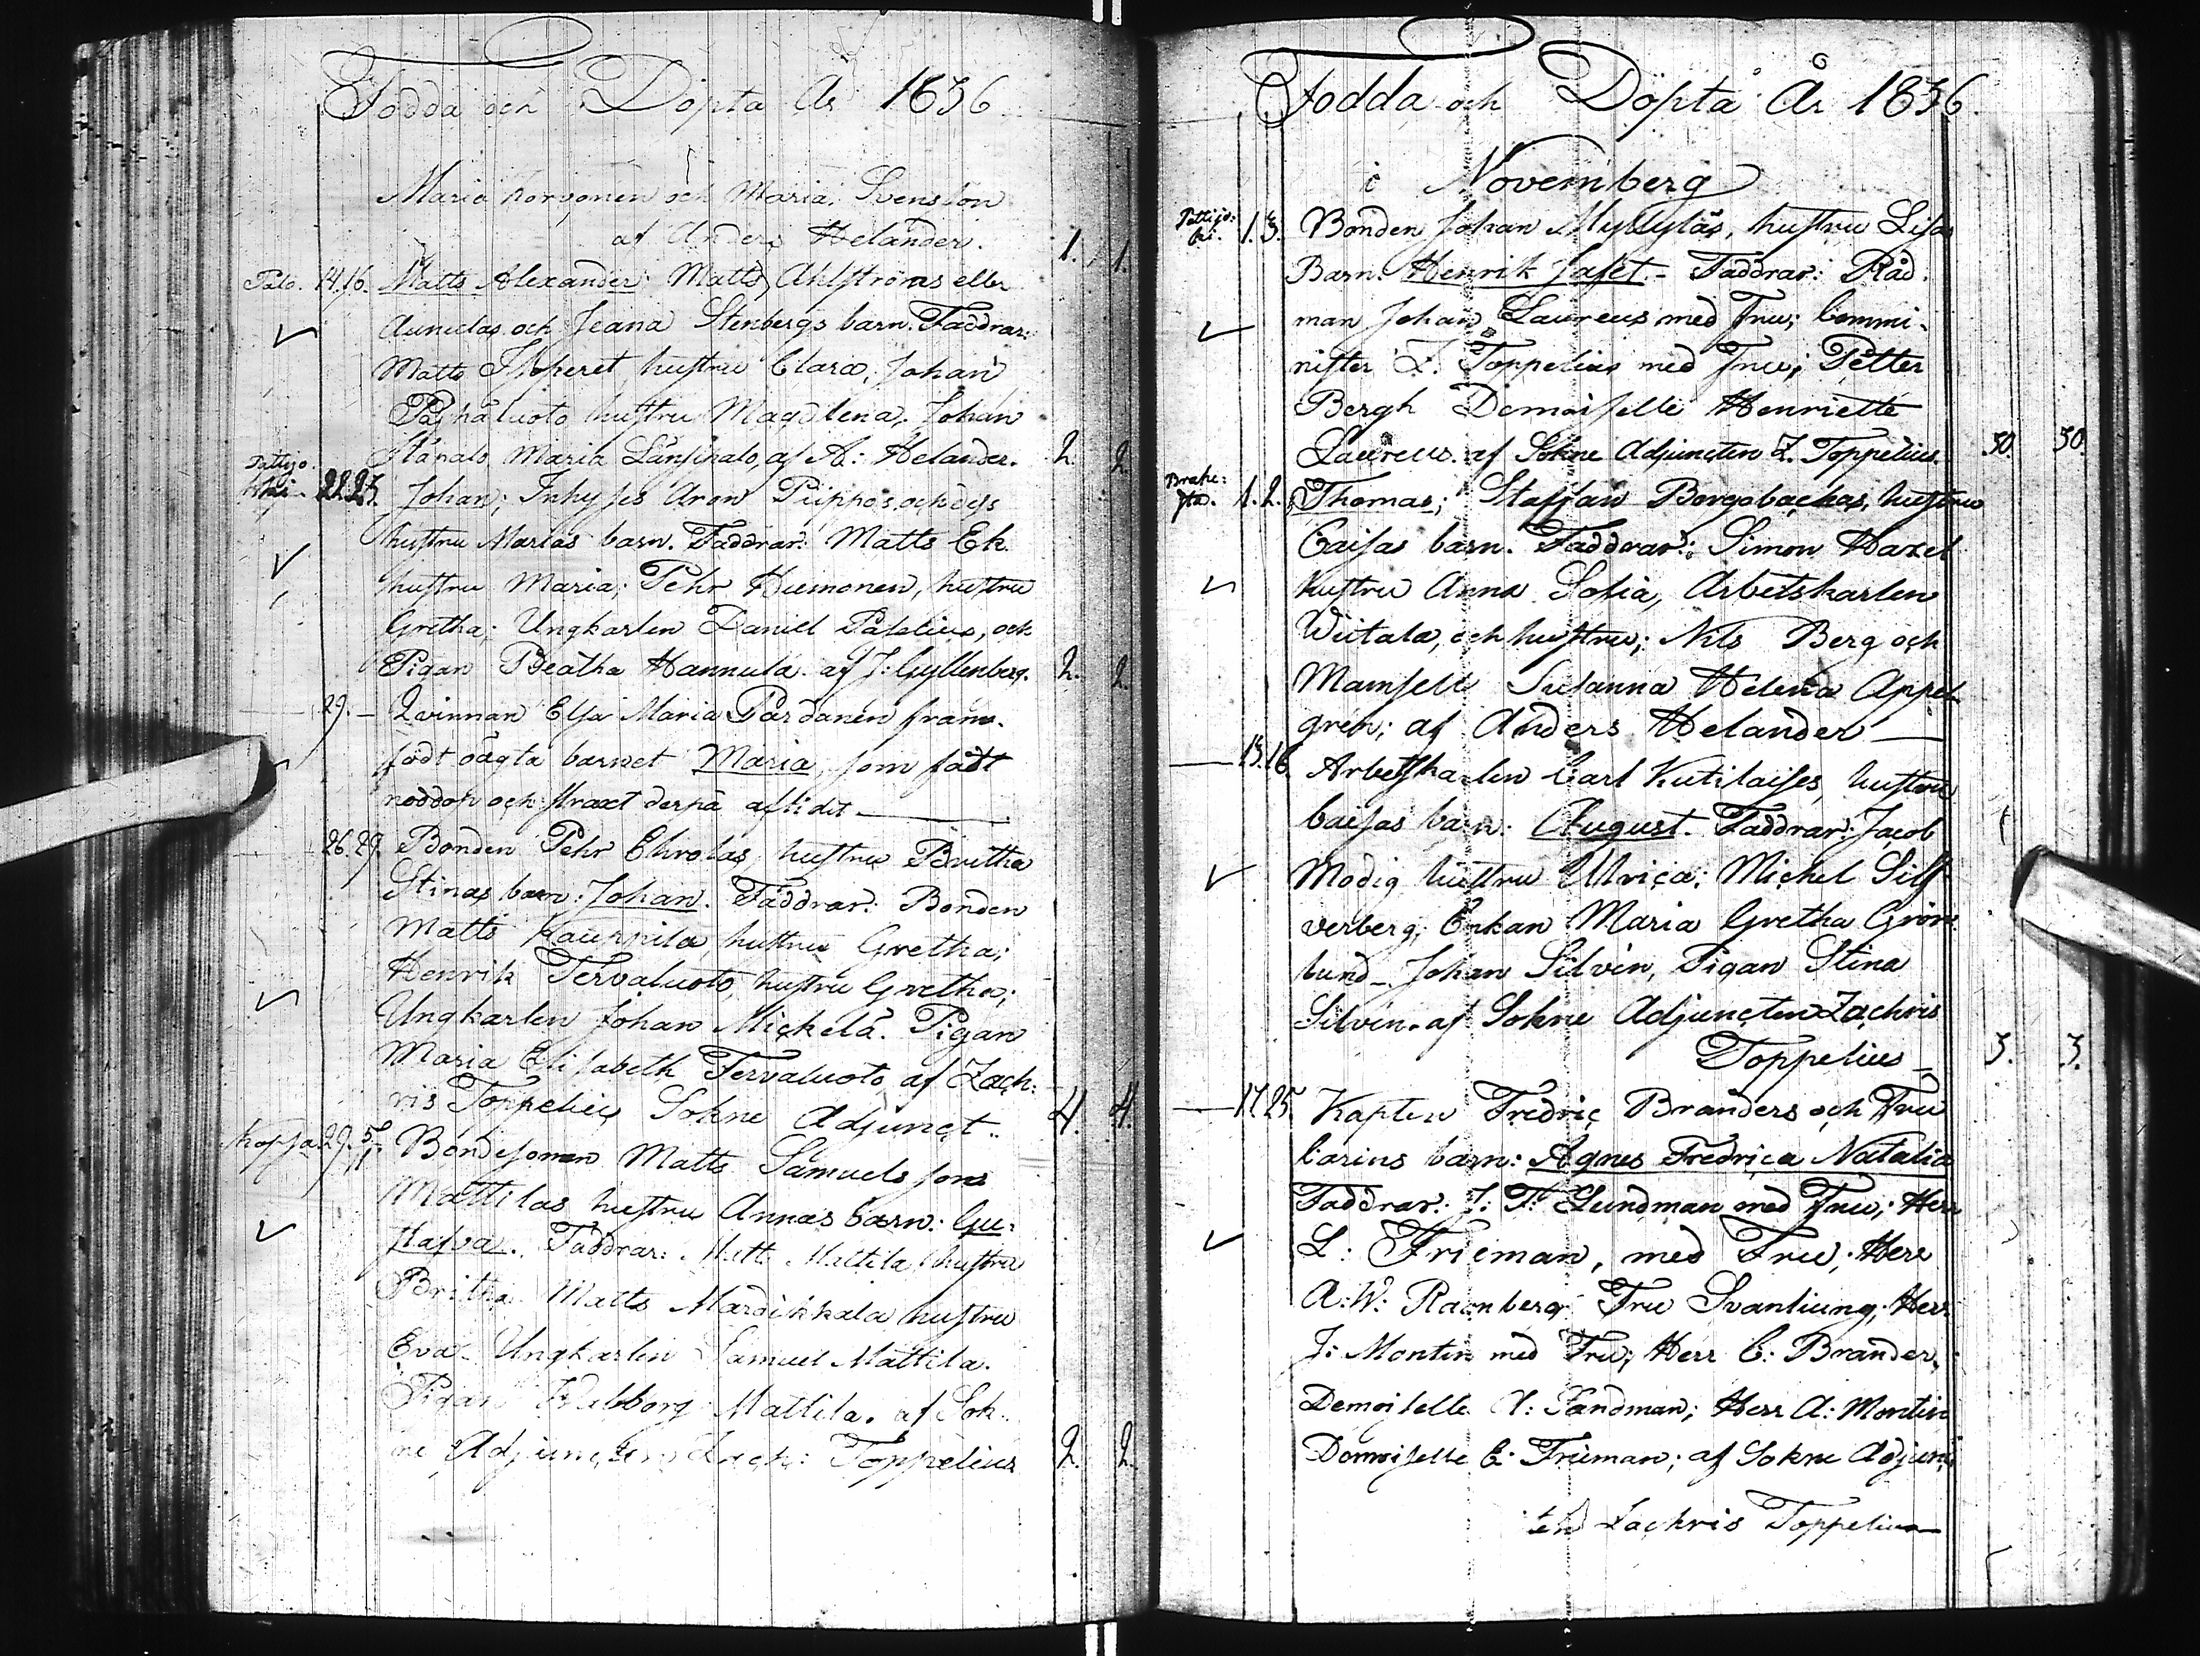 Födda och Döpta År 1836
Maria Korvonen och Maria Svenslon
af Anders Helander. 1. 1.
Palo. 14. 16. Matts Alexander; Matts Ahlströms eller
Aunulas och Jeana Stenbergs barn. Faddrar:
Matts hustru Clara, Johan
Pajhaluoto hustru Magdlena, Johan
Maria af A: Helander. 2. 2.
Pattijo-
ki 22. 23. Johan; Inhyses Aron Piippos och dess
hustru Marias barn. Faddrar: Matts Ek.
hustru Maria; Pehr Hiemonen, hustru
Gretha; Ungkarlen Daniel Palelius, och
Pigan Beatha Hannula. af J: Gyllenberg. 2. 2.
29. – Qvinnan Elsa Maria Pardanen fram-
födt oägta barnet Maria, som fådt
nöddop och straxt derpå aflidit
26. 29. Bonden Pehr Ehrolas hustru Britha
Stinas barn: Johan. Faddrar: Bonden
Matts Kauppila, hustru Gretha;
Henrik Tervaluoto, hustru Gretha;
Ungkarlen Johan Mickelä. Pigan
Maria Elisabeth Tervaluoto af Zach:
ris Toppelius Sokne Adjunct. 4. 4.
Kopsa 29. Bondesonen Matts Samuels sons
Mattilas hustru Annas barn: Gu:
stafva. Faddrar: Matts Mattila hustru
Britha Matts Mardikkala hustru
Eva. Ungkarlen Samuel Mattila.
Pigan Walborg Mattila. af Sok-
ne Adjuncten Zach: Toppelius 2. 2.
Födda och Döpta År 1836.
i November
Pattijo:
ki. 1. 3. Bonden Johan Myllyläs, hustru Lisas
Barn: Henrik Jafet. – Faddrar: Råd.
man Johan Laureus med Fru; Commi-
nister Z. Toppelius med Fru; Petter
Bergh Demoiselle Henriette
Laureus. af Sokne Adjuncten Z. Toppelius. 50. 50.
Brahe:
sta. 1. 2. Thomas; Staffan Borgobackas, hustru
Caisas barn. Faddrar: Simon Haxel
hustru Anna Sofia, Arbetskarlen
Wiitala, och hustru; Nils Berg och
Mamsell Susanna Helena Appel
gren; af Anders Helander
15. 16. Arbetskarlen Carl Kutilaises, hustru
Caisas barn: August. Faddrar: Jacob
Modig hustru Ulrica; Michel Silf
verberg; Enkan Maria Gretha Grön
lund – Johan Silvén, Pigan Stina
Silvén. af Sokne Adjuncten Zachris
Toppelius 3. 3.
17. 25. Kapten Fredric Branders och Fru
Carins barn: Agnes Fredrica Natalia
Faddrar: J: F: Lundman med Fru; Herr
L: Frieman, med Fru; Herr
A: W: Ramberg Fru Svanliung; Herr
J: Montin med Fru; Herr C: Brander,
Demoiselle A: Sandman; Herr A: Montin
Demoiselle C: Frieman; af Sokne Adjunc
ten Zachris Toppelius